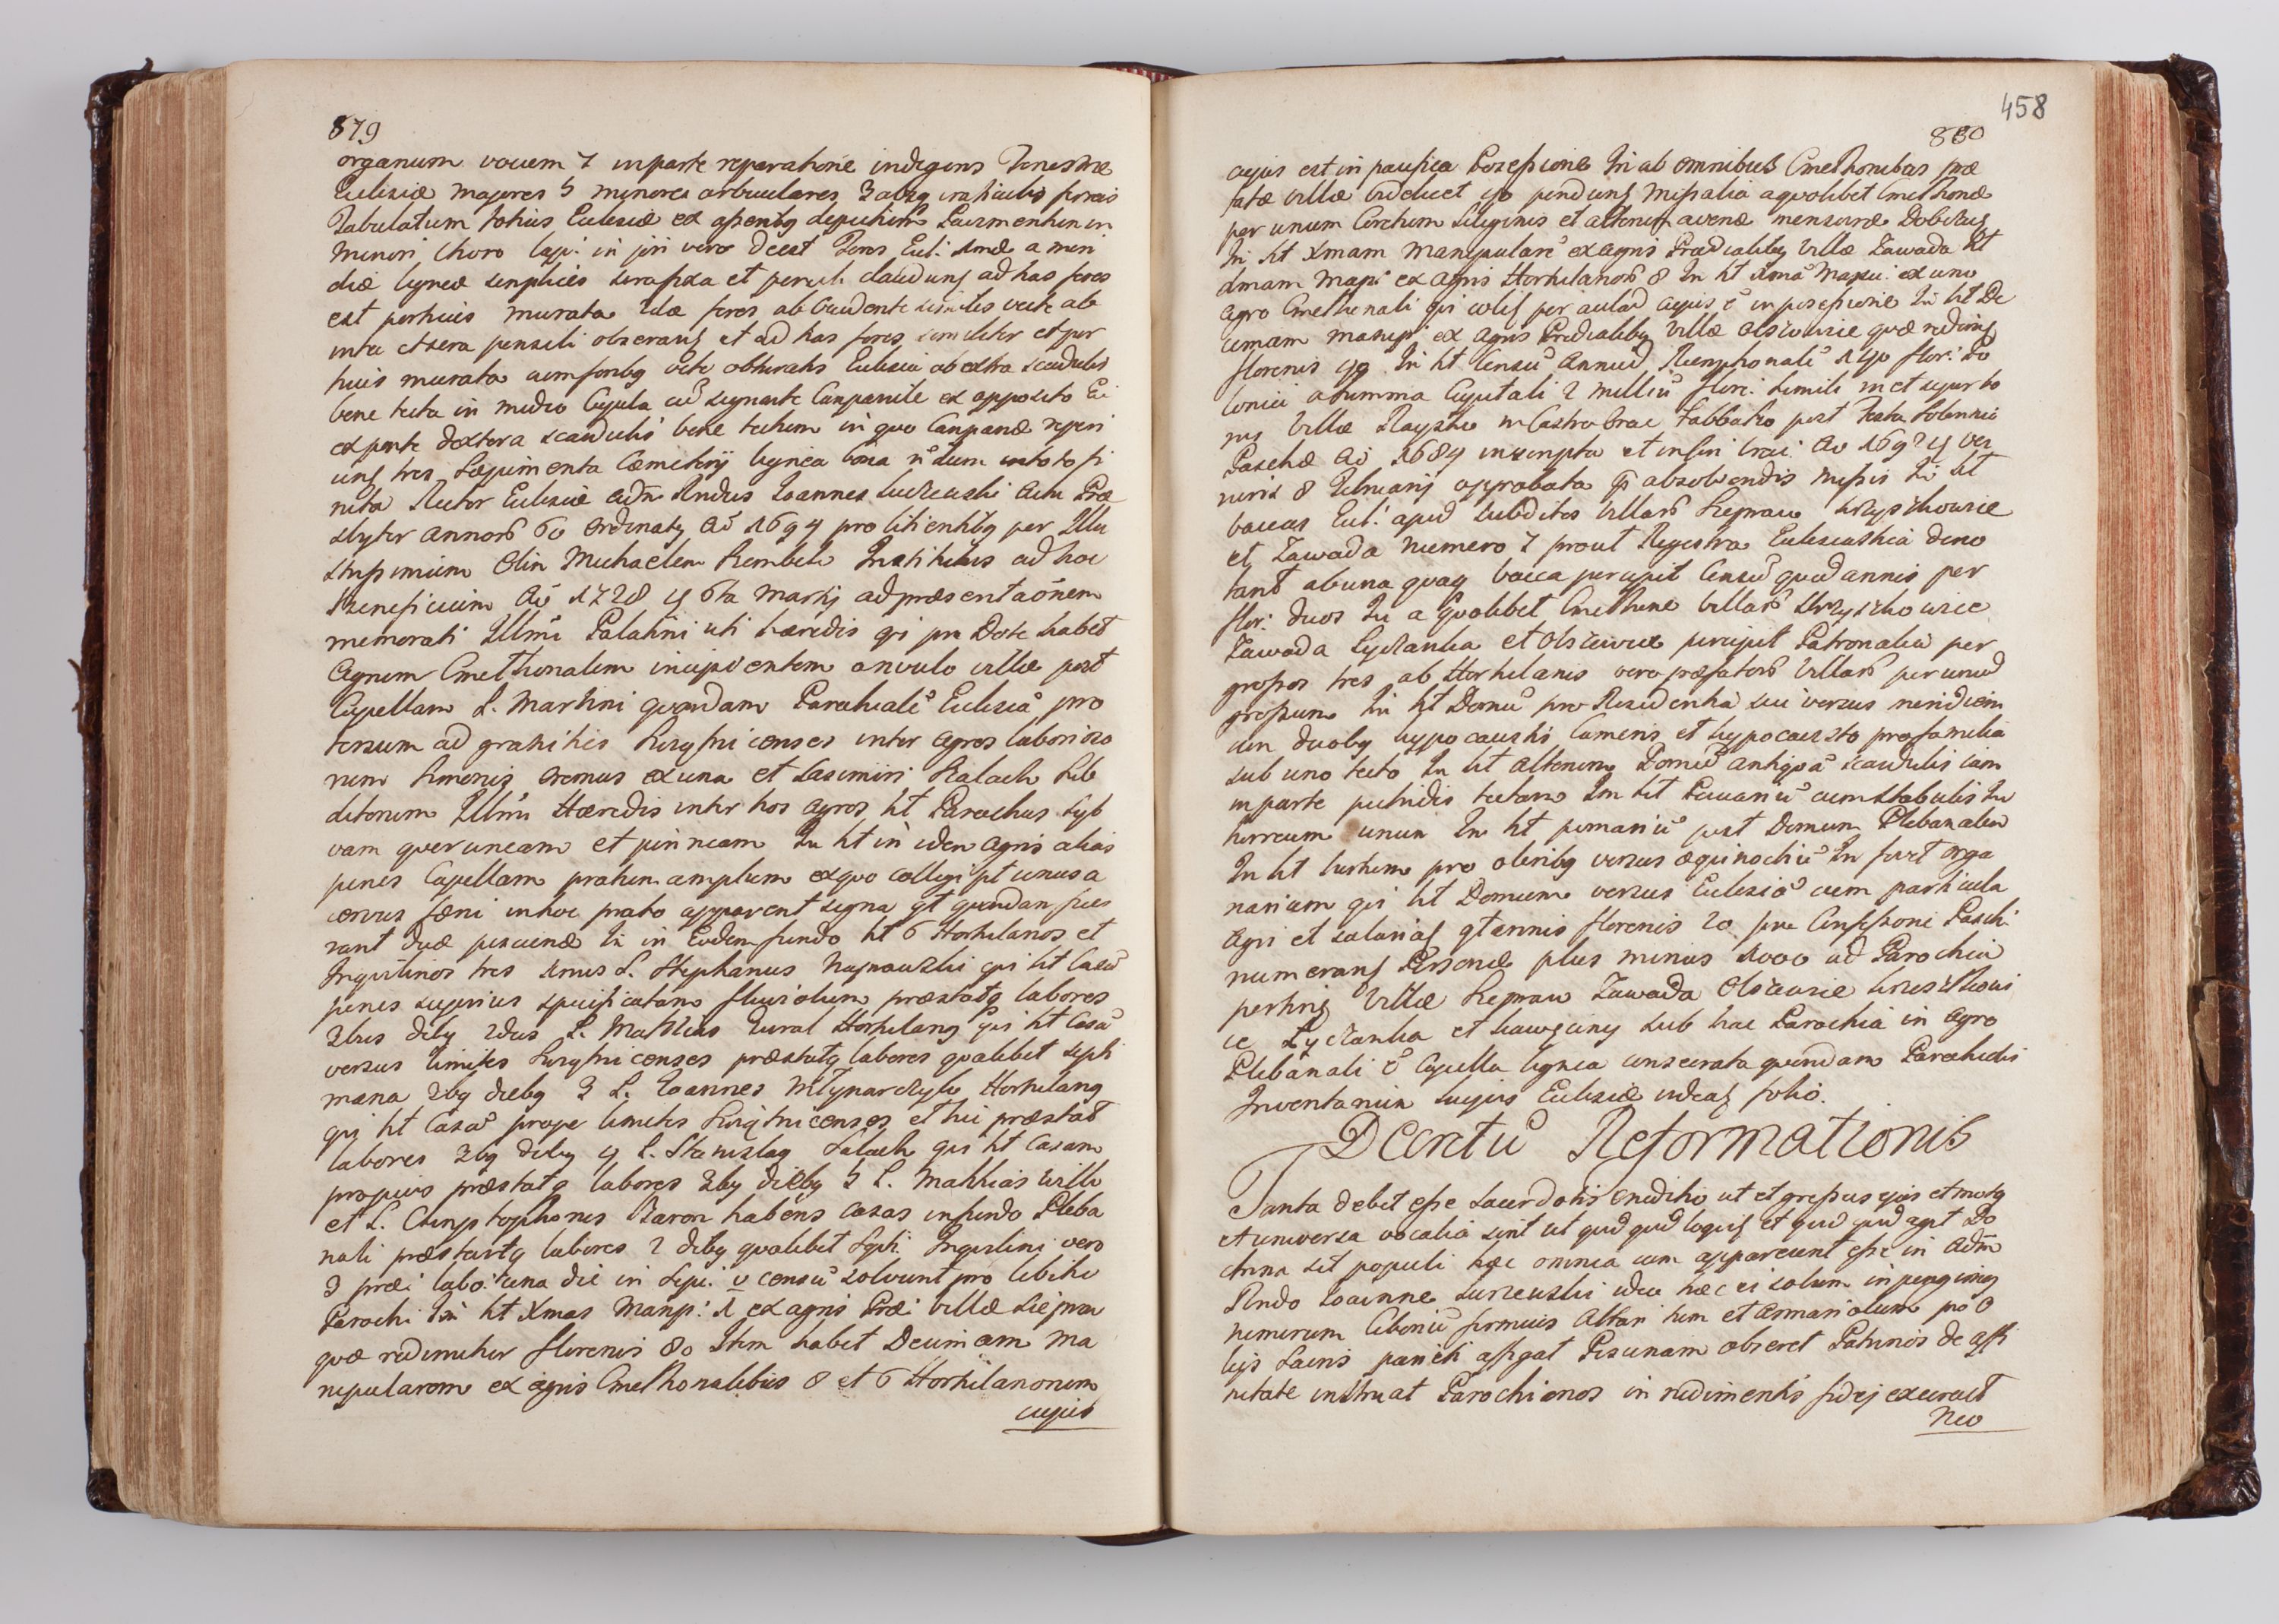 879
organum vocum 7 in parte reparatione indigens Fenestræ
Ecclesiæ majores 5 minores orbiculares 3 absq craticulis ferreis
Tabulatum totius Ecclesiæ ex asseribq depictum Pavimentum in
minori Choro lapi: in jori vero deest Fores Eccl: 1mæ a meri
die ligneæ simplices sera fixa et penesuli claudunt ad has fores
est porticus murata 2dæ fores ab occidente similes vecte ab
intra et sera pensili obserant et ad has fores similiter est por
ticus murata cum foribq vecte obturatis Ecclesia ab extra scandulis
bene tecta in medio Cupula cu signante Campanile ex opposito Ec
ex parte dextera scandulis bene tectum in quo Campanæ reperi
unt tres Sæpimenta Cæmeterij lignea bona nondum in toto fi
nita Rector Ecclesiæ Adm Rndus Joannes Surzewski Actu Præ
sbyter annorum 60 Ordinatq Ao 1694 pro litientibq per Illu
strissimum Olim Michaelem Rembeli Institutus ad hoc
Beneficium Ao 1728 y 6ta Martij ad præsentaonem
memorati Illmi Palatini uti hæredis qi pro Dote habet
Agrum Cmethonalem incipientem a rivulo villæ post
Capellam S. Martini quondam Parochiale Ecclesia pro
tensum ad granities Surgtnicenses inter agros laborioso
rum Simonis Oremus ex una et Casimiri Kalach Sub
ditorum Illmi Hæredis inter hos agros ht Parochus Syl
vam querunceam et pineam In ht in iden agris alias
penes Capellam pratum amplum ex quo colligi pt unus a
cervus fæni in hoc prato apparent signa qt quondam fue
rant duæ piscinæ In in Eodem fundo ht 6 Hortulanos et
Inquilinos tres 1mus S. Stephanus Najnowski qui ht Casa
penes superius specificatam fluviolum præstatq labores
2bus dieby 2dus S. Mathias Zural Hortulang qui ht Casa
versus limites Surgtnicenses præstatq labores qualibet septi
mana 2bq diebq 3 S. Joannes Młynarczyk Hortulang
qui ht Casa prope limites Surgtnicenses et hic præstat
labores 2bq diebq 4 S. Stanislaq Salach qui ht Casam
propius præstatq labores 2bq diebq 5 S. Mathias Wilk
et S. Christophorus Baron habens casas in fundo Pleba
nali præstantq labores 2 diebq qualibet Septi. Inquilini vero
3 præi labo: una die in Sepi: v censu solvunt pro libitu
Parochi In ht Xmas Manip: 1 ex agris Præi villæ Siepraw
quæ redimitur florenis 80 Item habet Decimam Ma
nipularem ex agris Cmethonalibus 8 et 6 Hortulanorum
cujus
458
880
cujus est in pacifica Possessione In ab omnibus Cmethonibus præ
fatæ villæ videlicet qo pendunt Missalia a quolibet Cmethonæ
per unum Coretum Siliginis et alterum avenæ mensuræ Dobcens
In ht Xmam Manipulare ex agris Prædialibq villæ Zawada ht
Xmam Mapi ex agris Hortulanor 8 In ht Xma Mapu: ex uno
agro Cmethonali qui colit per aula cujus e in possessione In ht De
cimam manipi ex agris Prædialibq Villæ Olszowice quæ redimit
florenis 40 In ht Censu Annuu Reemptionale 140 flor: Po
lonici a summa Capitali 2 milliu flore: simili mct super bo
nis villæ Rayska in Castro Crac Sabbatho post Festa Solennia
Paschæ Ao 1684 inscripta et in fin Crac: Ao 1694 ver
neris 8 Februarij approbata p absolvendis missis In ht
vaccas Eccl: apud subditos villar Siepraw Krzyszkowice
et Zawada numero 7 prout Regestra Ecclesiastica deno
tant ab una quaq vacca percipit Censu quodannis per
flor: duos In a quolibet Cmethone villar Krzyszkowice
Zawada Lyczanka et Olszowice percipit Patronaliu per
grossos tres ab Hortulanis vero præfatorum Villar per unu
grossum In ht Domu pro Residentia sui versus meridiem
cum duobq hypocaustis Cameris et hypocausto pro familia
sub uno tecto In ht alterum Domu antiqua scandulis iam
in parte putridis tectam Im ht Pecuariu cum stabulis In
horreum unum In ht pomariu post Domum Plebanalem
In ht hortum pro oleribq versus æquinoctiu In fovet orga
narium qui ht Domum versus Ecclesia cum particula
agri et salariat qtannis florenis 20 pro Confessione Paschi
numerant Personæ plus minus 1000 ad Parochia
pertinet Villæ Siepraw Zawada Olszowice Krzeszkowi
ce Lyczanka et Ławęciny sub hac Parochia in agro
Plebanali e Capella lignea consecrata quondam Parochialis
Inventarium hujus Ecclesiæ videat folio.
Decretu Reformationis
Tanta debet esse Sacerdotis eruditio ut et gressus ejus et motq
et universa vocalia sint ut quidquid loquit et quidquid agit Do
ctrina sit populi hæc omnia cum appareant esse in Adm
Rndo Joanne Surzewski ideo hæc ei solum inpungimq
numerum Ciboriu firmius Altari tum et armariolum pro O
leijs Sacris parieti affigat Piscinam obseret Patrinos de affi
nitate instruat Parochianos in rudimentis fidej exerceat
Neo